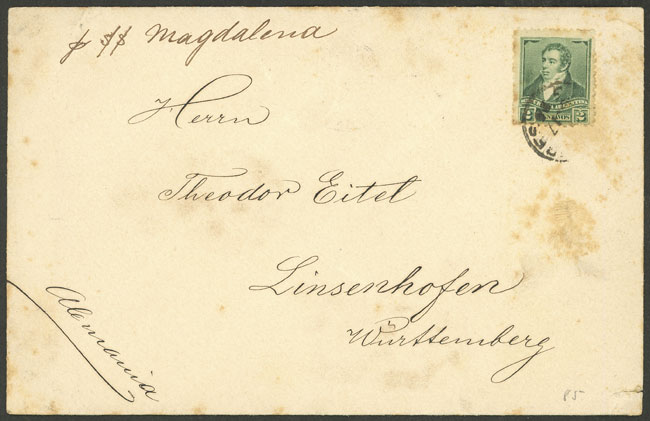 p SS Magdalena
Herrn
Theodor Eitel
Linsenhofen
Württemberg
Alemania
85